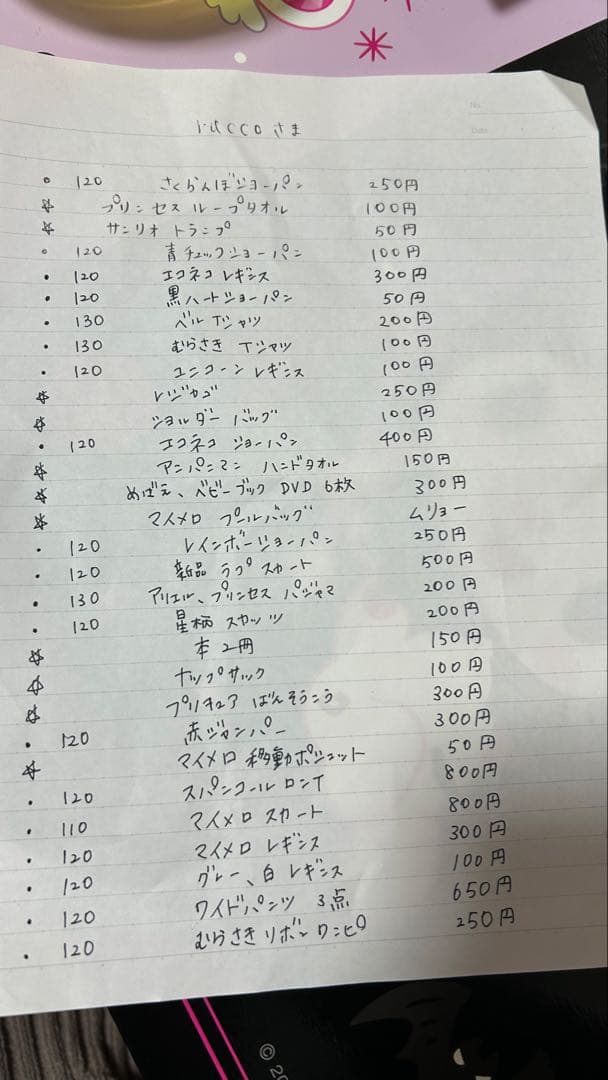 ruccoさま
No.
Date
• 120 さくらんぼジョーパン 250円
☆ プリンセス ループタオル 100円
☆ サンリオ トランプ 50円
• 120 青チェックジョーパン 100円
• 120 エコネコ レギンス 300円
• 120 黒ハートジョーパン 50円
• 130 ベル Tシャツ 200円
• 130 むらさき Tシャツ 100円
• 120 ユニコーン レギンス 100円
☆ レジカゴ 250円
☆ ショルダー バッグ 100円
• 120 エコネコ ジョーパン 400円
☆ アンパンマン ハンドタオル 150円
☆ めばえ、ベビーブック DVD 6枚 300円
☆ マイメロ プールバッグ ムリョー
• 120 レインボージョーパン 250円
• 120 新品 ラプ スカート 500円
• 130 アリエル、プリンセス パジャマ 200円
• 120 星柄 スカッツ 200円
☆ 本 2冊 150円
☆ ナップサック 100円
☆ プリキュア ばんそうこう 300円
• 120 赤ジャンパー 300円
☆ マイメロ 移動ポシェット 50円
• 120 スパンコール ロンT 800円
• 110 マイメロ スカート 800円
• 120 マイメロ レギンス 300円
• 120 グレー、白 レギンス 100円
• 120 ワイドパンツ 3点 650円
• 120 むらさき リボン ワンピ 250円